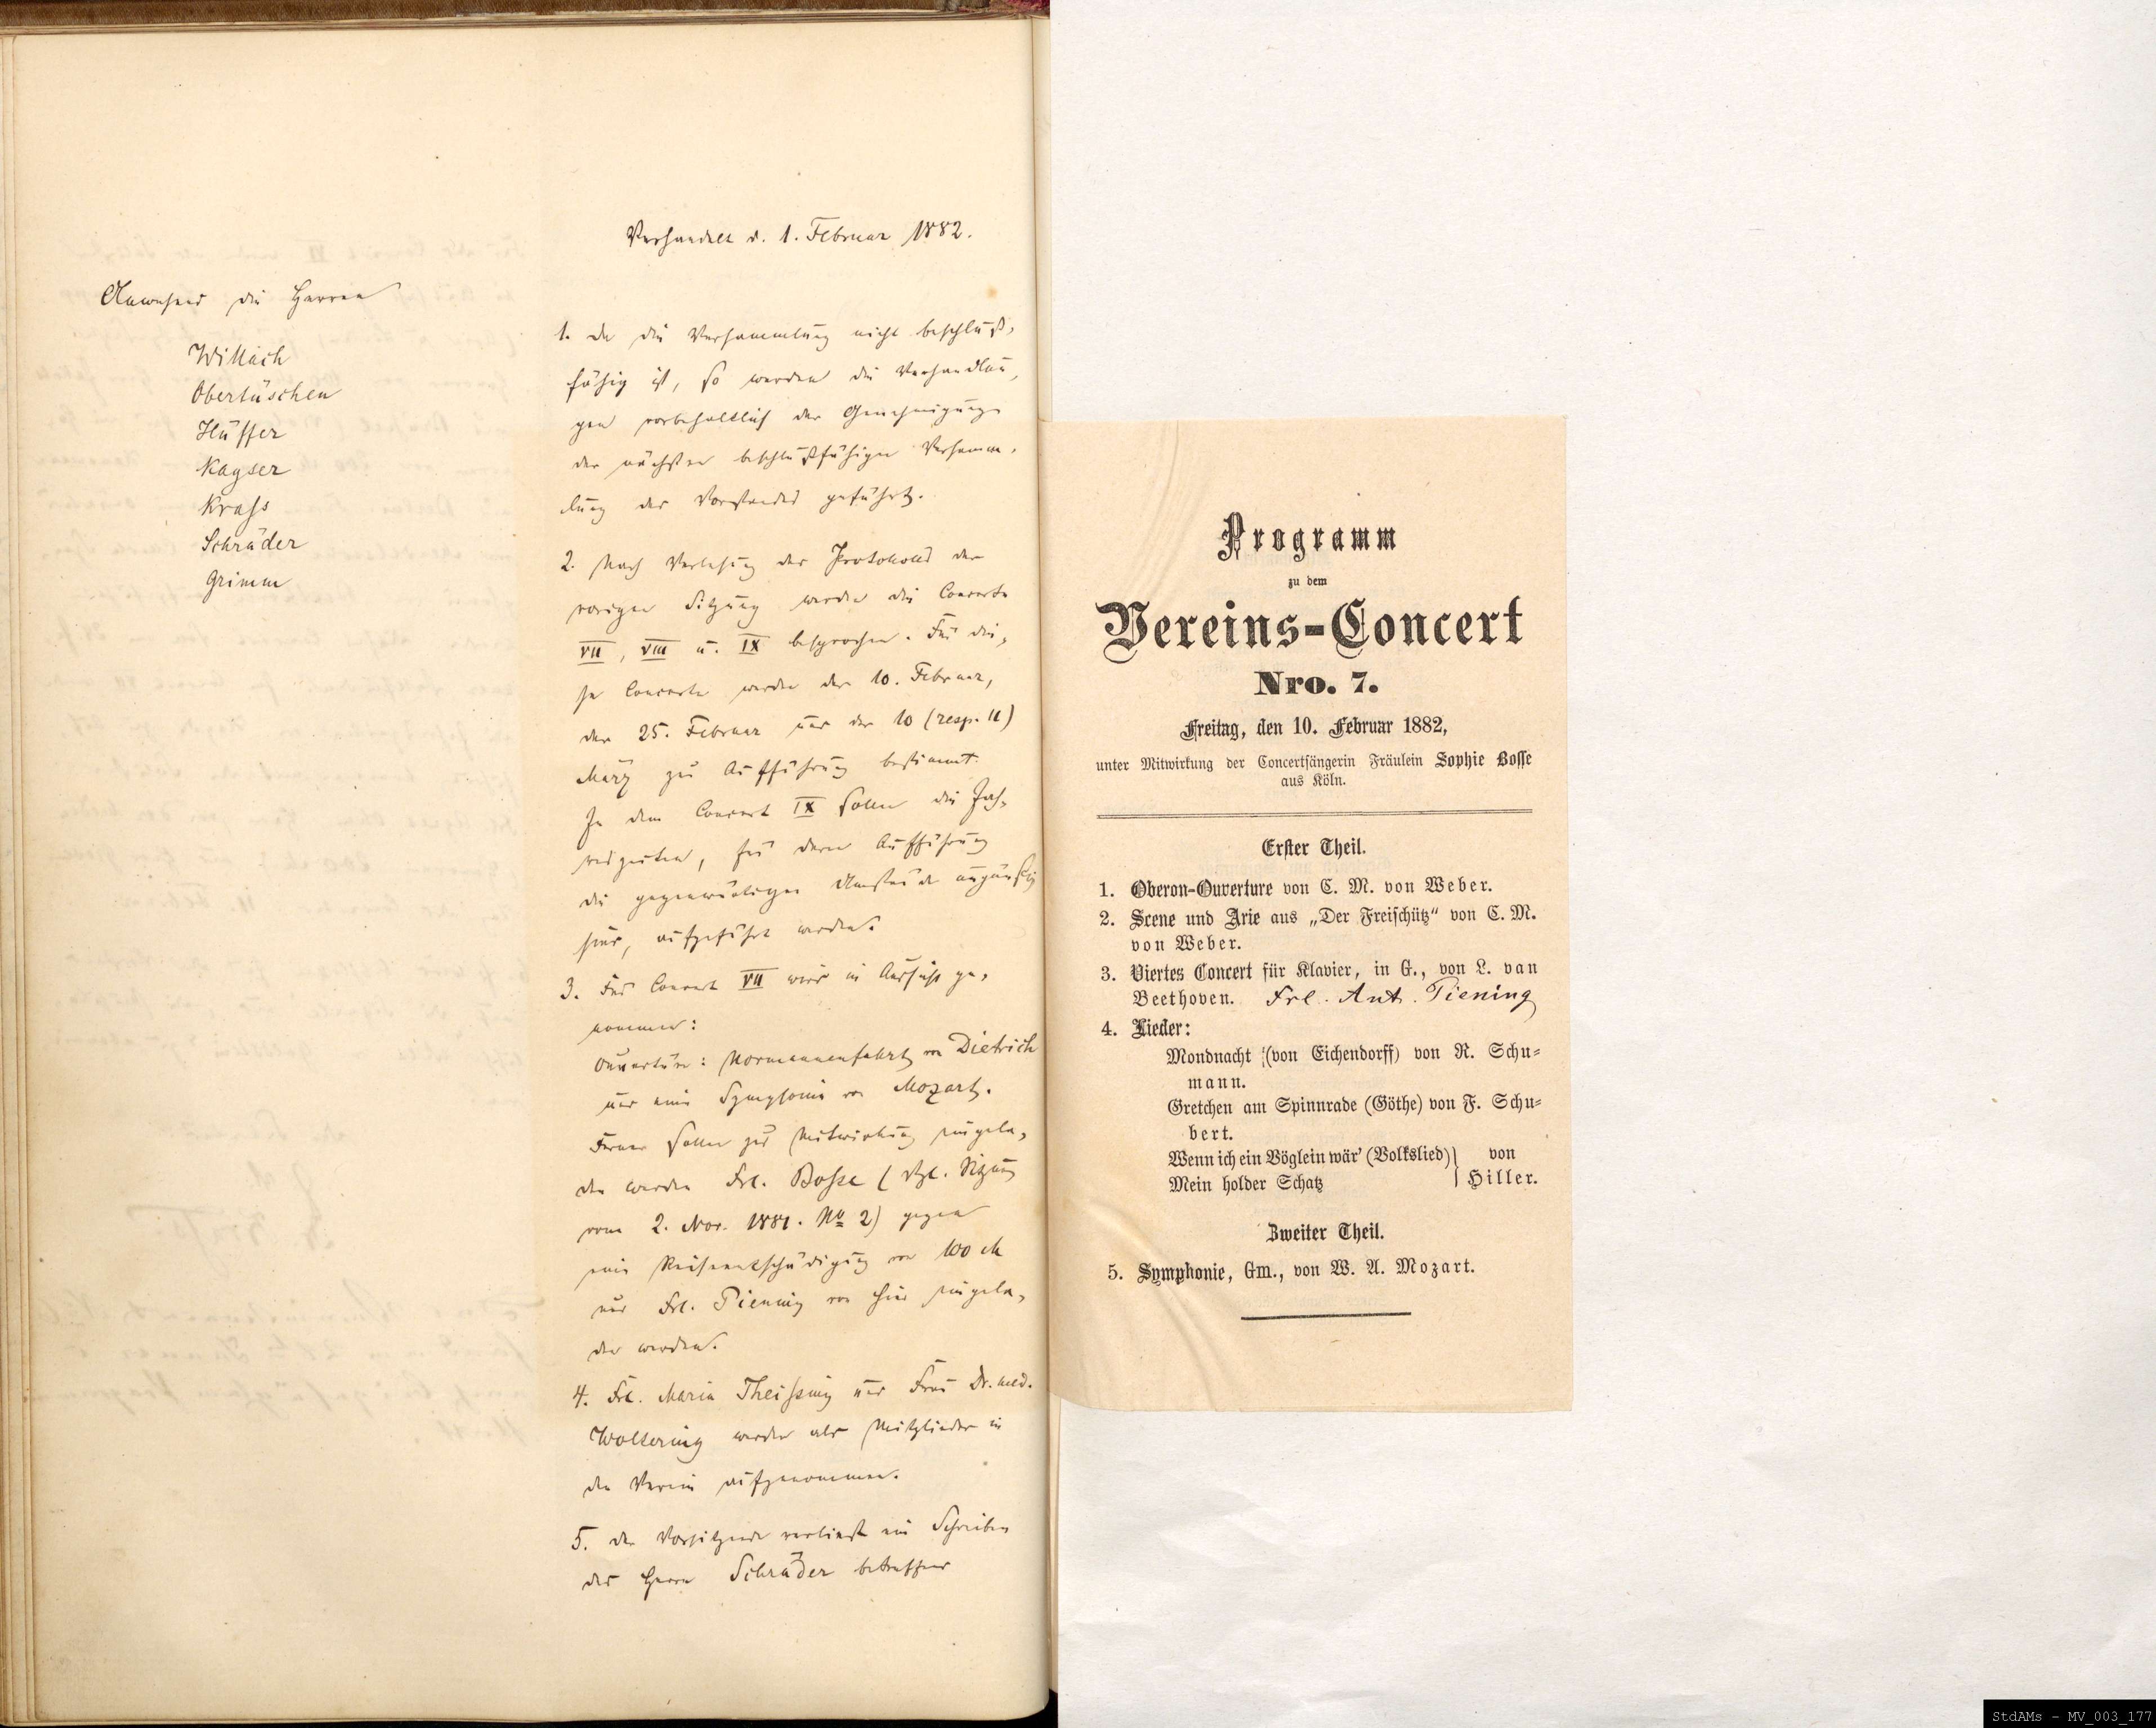 Verhandelt d. 1. Februar 1882.
Anwesend die Herren
Willach
Obertüschen
Hüffer
Kayser
Krass
Schräder
Grimm
1. Da die Versammlung nicht beschluß-
fähig ist, so werden die Verhandlun-
gen vorbehaltlich der Genehmigung
der nächsten beschlußfähigen Versamm-
lung des Vorstandes geführt.
2. Nach Verlesung des Protokolls der
vorigen Sitzung werden die Concerte
VII, VIII u. IX besprochen. Für die-
se Concerte werden der 10. Februar,
der 25. Februar und der 10 (resp. 11)
März zur Aufführung bestimmt.
In dem Concert IX sollen die Jah-
reszeiten, für deren Aufführung
die gegenwärtigen Umstände günstig
sind, aufgeführt werden.
3. Für Concert VII wird in Aussicht ge-
nommen:
Ouvertüre: Normannenfahrt von Dietrich
und eine Symphonie von Mozart.
Ferner sollen zur Mitwirkung eingela-
den werden Frl. Bosse (vgl. Sitzung
vom 2. Nov. 1881. No 2) gegen
eine Reiseentschädigung von 100 M
und Frl. Piening von hier eingela-
den werden.
4. Frl. Maria Theissing und Frau Dr. med.
Woltering werden als Mitglieder in
den Verein aufgenommen.
5. Der Vorsitzende verliest ein Schreiben
des Herrn Schräder betreffend
Programm
zu dem
Vereins-Concert
Nro. 7.
Freitag, den 10. Februar 1882,
unter Mitwirkung der Concertsängerin Fräulein Sophie Bosse
aus Köln.
Erster Theil.
1. Oberon-Ouverture von C. M. von Weber.
2. Scene und Arie aus „Der Freischütz“ von C. M.
von Weber.
3. Viertes Concert für Klavier, in G., von L. van
Beethoven. Frl. Ant. Piening
4. Lieder:
Mondnacht (von Eichendorff) von R. Schu=
mann.
Gretchen am Spinnrade (Göthe) von F. Schu=
bert.
Wenn ich ein Vöglein wär' (Volkslied) } von
Mein holder Schatz } Hiller.
Zweiter Theil.
5. Symphonie, Gm., von W. A. Mozart.
StdAMs - MV_003_177